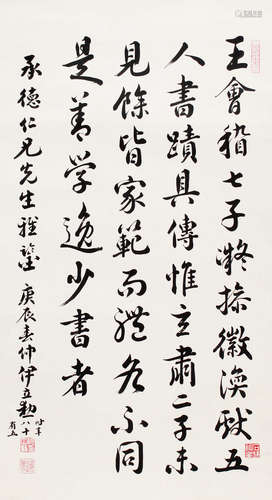 王會稽七子凝操徽渙獻五
人書蹟具傳惟玄肅二子未
見餘皆家範而體各不同
是善學逸少書者
承德仁兄先生雅鑒 庚辰春仲伊立勳 時年八十有五